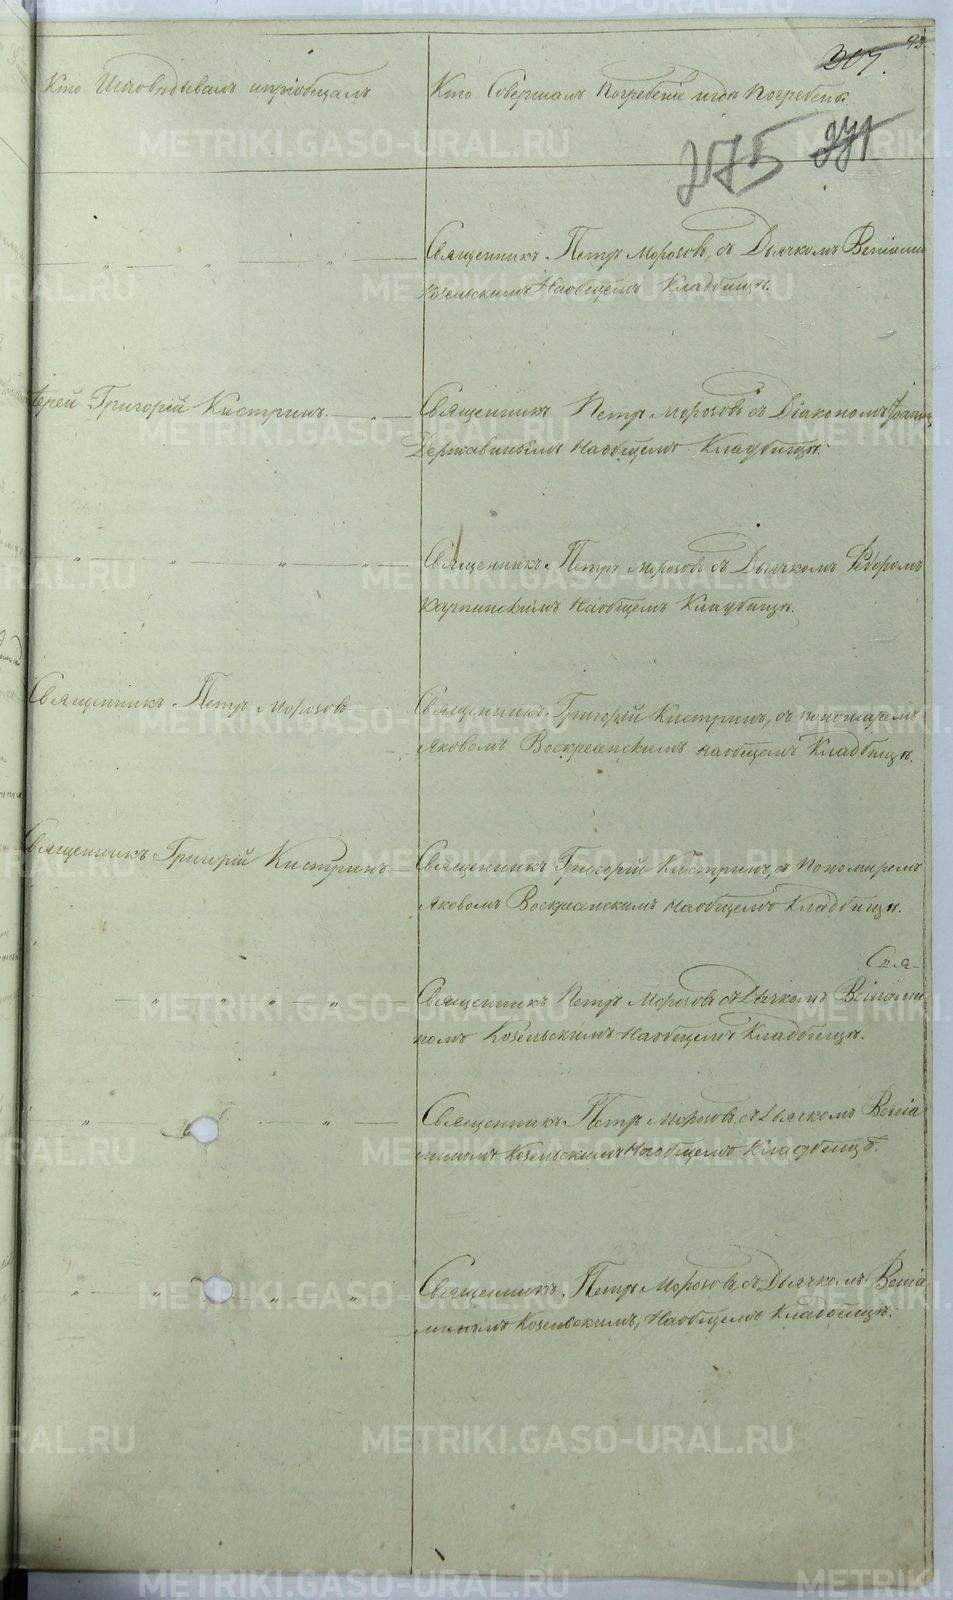 93
307.
Кто Исповѣдывалъ ипріобщалъ
Кто Совершалъ Погребеніе игдѣ Погребены.
275
271
Священникъ Петръ Морозовъ, съ Дьячкомъ Веніами
Козельскимъ Наобщемъ Кладбищѣ.
Іерей Григорій Кистринъ.
Священникъ Петръ Морозовъ съ Діакономъ Іоанномъ
Державинымъ Наобщемъ Кладбищѣ.
Священникъ Петръ Морозовъ съ Дьячкомъ Ѳедоромъ
Наобщемъ Кладбищѣ.
Священникъ Петръ Морозовъ
Священникъ Григорій Кистринъ, съ пономаремъ
Яковомъ Воскресенскимъ наобщемъ Кладбищѣ.
Священникъ Григорій Кистринъ.
Священникъ Григорій Кистринъ, съ Пономаремъ
Яковомъ Воскресенскимъ Наобщемъ Кладбищѣ.
Священникъ Петръ Морозовъ съ Дьячкомъ Веніами
номъ Козельскимъ Наобщемъ Кладбищѣ.
Священникъ Петръ Морозовъ, съ Дьячкомъ Веніа
миномъ Козельскимъ Наобщемъ Кладбищѣ.
Священникъ Петръ Морозовъ, съ Дьячкомъ Веніа
миномъ Козельскимъ, Наобщемъ Кладбищѣ.
METRIKI.GASO-URAL.RU